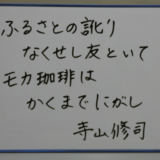 ふるさとの訛り
なくせし友といて
モカ珈琲は
かくまでにがし
寺山修司